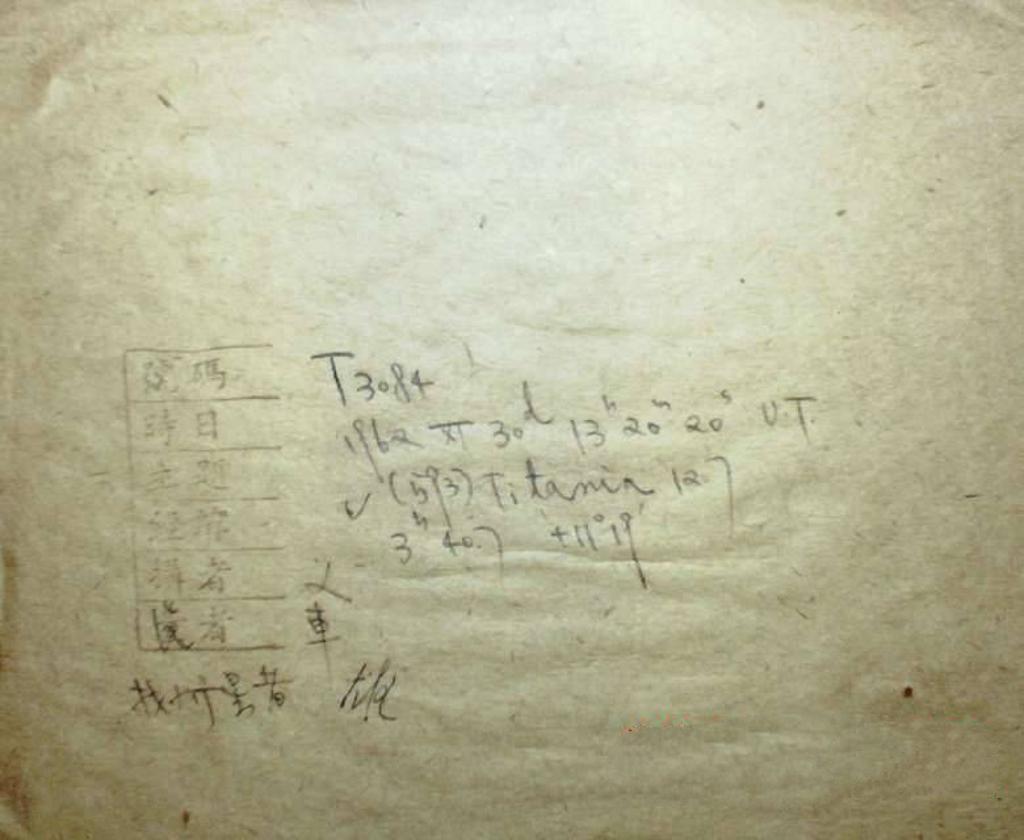 號碼 T3084
時日 1962 XI 30d 13h 20m 20s U.T.
主題 ✓ (593) Titania 12.7
經緯 3h 40.7 +11°19'
者
者 車
找 星者 雄